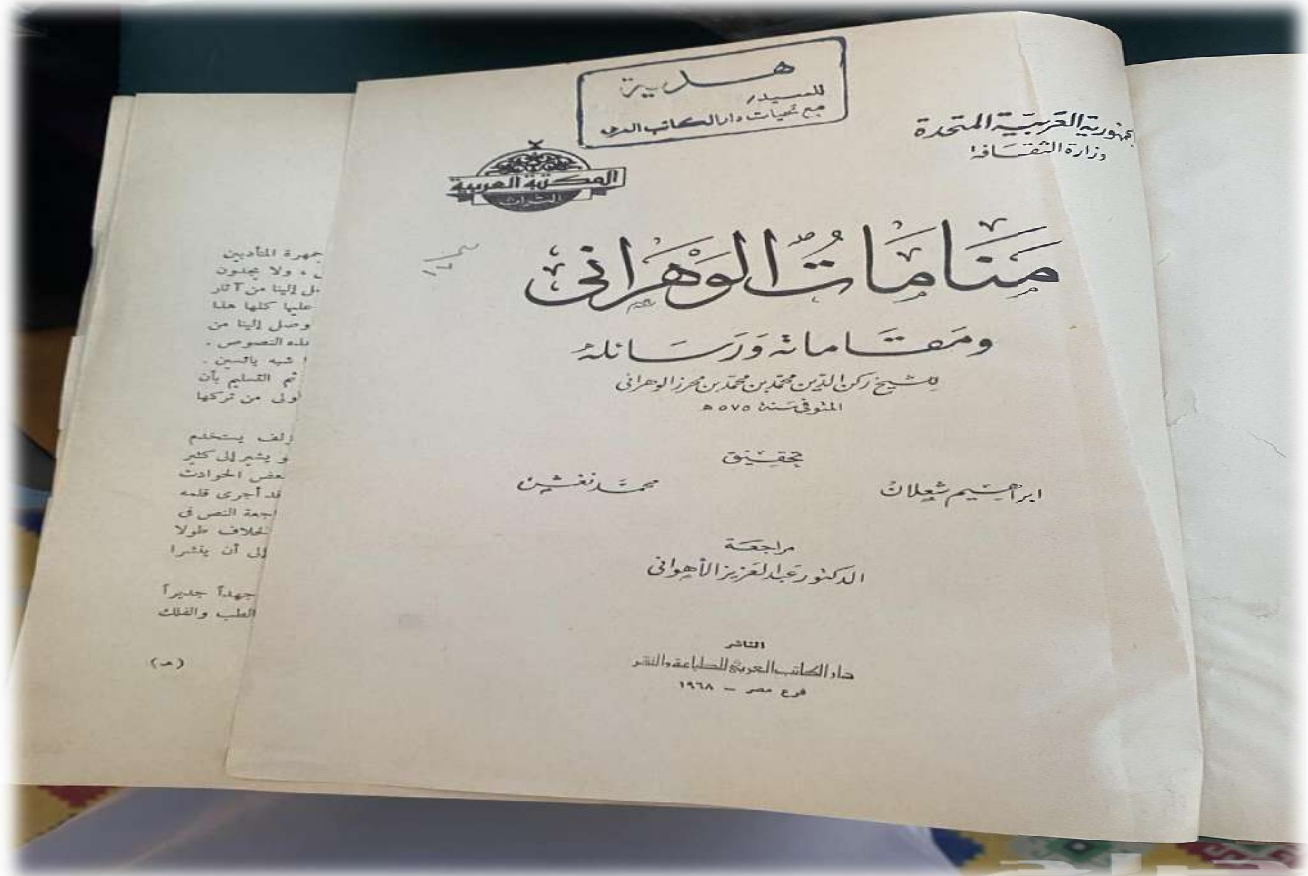 هدية
للسيد/
مع تحيات دار الكاتب العربي
الجمهورية العربية المتحدة
وزارة الثقافة
المكتبة العربية
التراث
منامات الوهرانى
ومقاماته ورسائله
للشيخ ركن الدين محمد بن محمد بن محرز الوهرانى
المتوفى سنة ٥٧٥ هـ
تحقيق
ابراهيم شعلان
محمد نغش
مراجعة
الدكتور عبد العزيز الأهوانى
الناشر
دار الكاتب العربى للطباعة والنشر
فرع مصر – ١٩٦٨
جمهرة المتأدبين
، ولا يجدون
إلينا من آثار
عليها كلها هذا
وصل إلينا من
هذه النصوص .
شبه يائسين .
ثم التسليم بأن
أولى من تركها
يستخدم
و يشير إلى كثير
بعض الحوادث
قد أجرى قلمه
النص فى
طولا
إلى أن يفشرا
جهداً جديراً
الطب والفلك
(هـ)